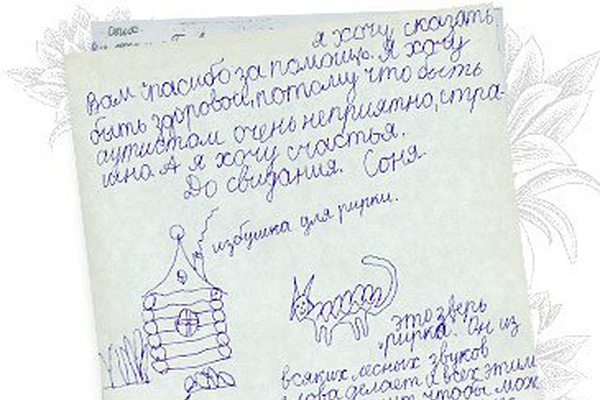 я хочу сказать
Вам спасибо за помощь. Я хочу
быть здоровой, потому что быть
аутистом очень неприятно, стра-
шно. А я хочу счастья.
До свидания. Соня.
избушка для рирки.
это зверь
"рирка". Он из
всяких лесных звуков
слова делает и всех этим
чтобы мож